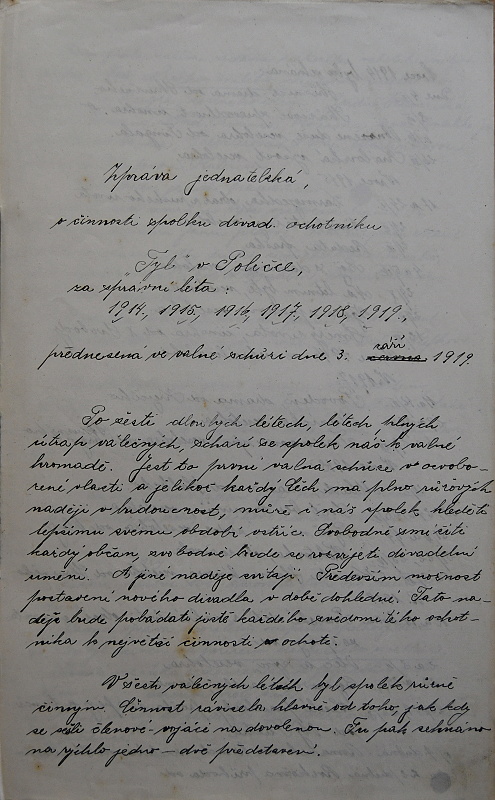 Zpráva jednatelská,
o činnosti spolku divad. ochotníku
„Tyl" v Poličce,
za správní léta:
1914., 1915, 1916, 1917, 1918, 1919.,
přednesená ve valné schůzi dne 3. září 1919.
Po šesti dlouhých létech, létech plných
útrap válečných, schází se spolek náš k valné
hromadě. Jest to první valná schůze v osvobo-
zené vlasti a jelikož každý Čech má plno růžových
nadějí v budoucnost, může i náš spolek hleděti
lepšímu svému období vstříc. Svobodně smýšleti
každý občan, svobodně bude se rozvíjeti divadelní
umění. A jiné naděje svítají. Především možnost
postavení nového divadla v době dohledné. Tato na-
děje bude pobádati jistě každého svědomitého ochot-
níka k největší činnosti ochotě.
V šesti válečných létech byl spolek různě
činným. Činnost závisela hlavně od toho, jak kdy
se sešli členové-vojáci na dovolenou. Tu pak sehráno
na rychlo jedno – dvě představení.